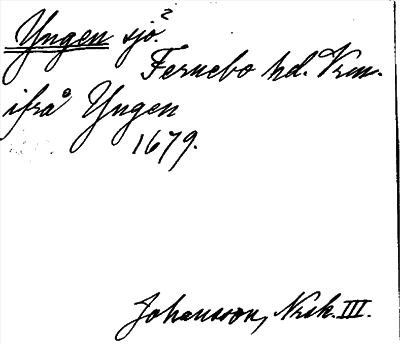 Yngen sjö.²
Fernebo hd. Vrm.
ifrå Yngen
1679.
Johansson, Nrsk. III.